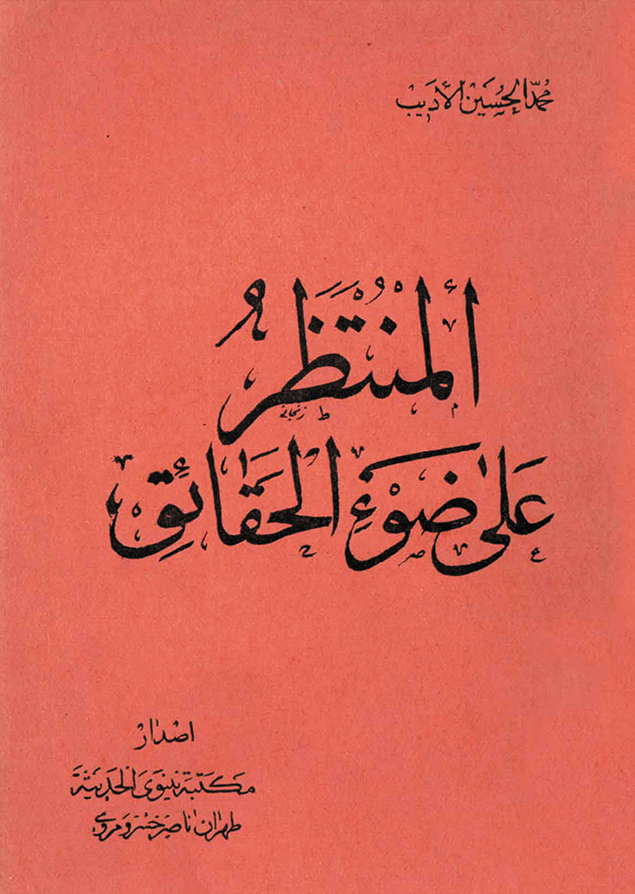 محمّد الحُسَين الأديب
ألمُنْتَظَرُ
زنجانی
عَلىٰ ضَوْءِ الحَقَائِقِ
اصْدار
مَكتَبَة نينَوىٰ الحَديثَة
طهران ناصر خسرو مروي